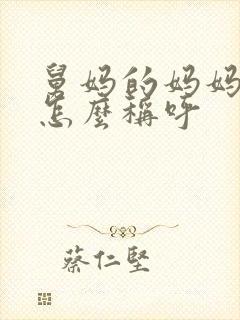 舅妈的妈妈
怎麼稱呼
蔡仁堅